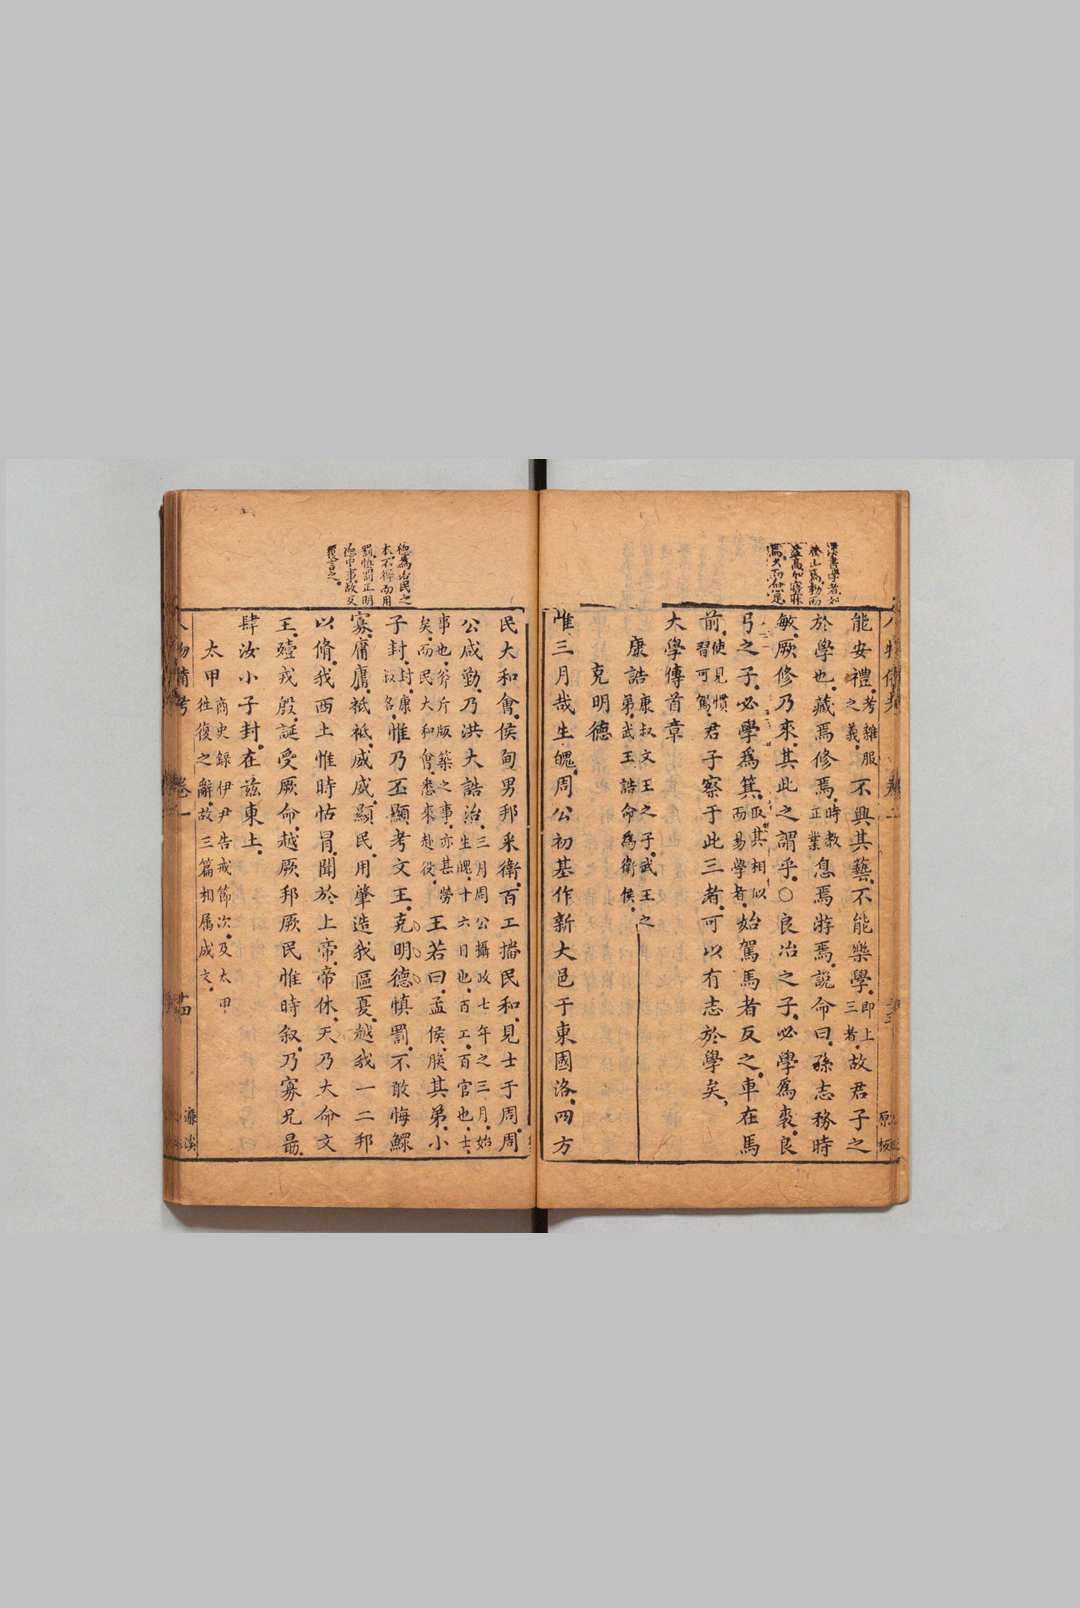 能安禮考雜服之義不興其藝不能樂學即上三者故君子之
於學也藏焉修焉時教正業息焉游焉說命曰孫志務時
敏厥修乃來其此之謂乎○良冶之子必學爲裘良
弓之子必學爲箕取其相似而易學者始駕馬者反之車在馬
前使見慣習可駕君子察于此三者可以有志於學矣
大學傳首章
康誥康叔文王之子武王之弟武王誥命爲衛侯
克明德
惟三月哉生魄周公初基作新大邑于東國洛四方
民大和會侯甸男邦采衛百工播民和見士于周周
公咸勤乃洪大誥治三月周公攝政七年之三月始生魄十六日也百工百官也士
事也斧斤版築之事亦甚勞矣而民大和會悉來赴役王若曰孟侯朕其弟小
子封封康叔名惟乃丕顯考文王克明德慎罰不敢悔鰥
寡庸庸祗祗威威顯民用肇造我區夏越我一二邦
以脩我西土惟時怙冒聞於上帝帝休天乃大命文
王殪戎殷誕受厥命越厥邦厥民惟時叙乃寡兄勗
肆汝小子封在茲東土
太甲商史録伊尹告戒節次及太甲往復之辭故三篇相属成文
卷一
廿四
濂溪